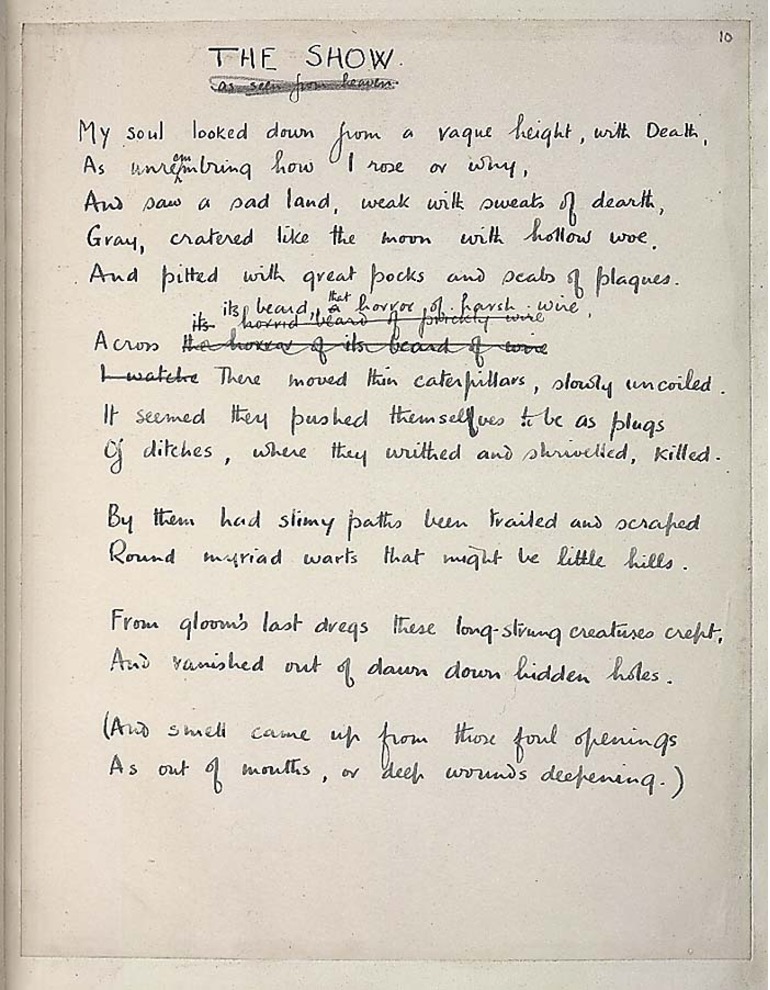 10
THE SHOW.
as seen from heaven
My soul looked down from a vague height, with Death,
As unremembring how I rose or why,
And saw a sad land, weak with sweats of dearth,
Gray, cratered like the moon with hollow woe,
And pitted with great pocks and scabs of plagues.
its beard, that horror of harsh wire,
its horrid beard of prickly wire
Across the horror of its beard of wire
I watche There moved thin caterpillars, slowly uncoiled.
It seemed they pushed themselves to be as plugs
Of ditches, where they writhed and shrivelled, killed.
By them had slimy paths been trailed and scraped
Round myriad warts that might be little hills.
From gloom's last dregs these long-strung creatures crept,
And vanished out of dawn down hidden holes.
(And smell came up from those foul openings
As out of mouths, or deep wounds deepening.)